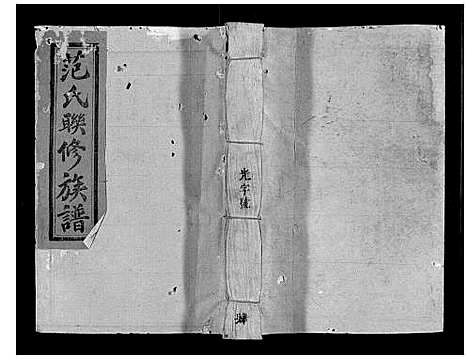 范氏聯修族譜
光字號